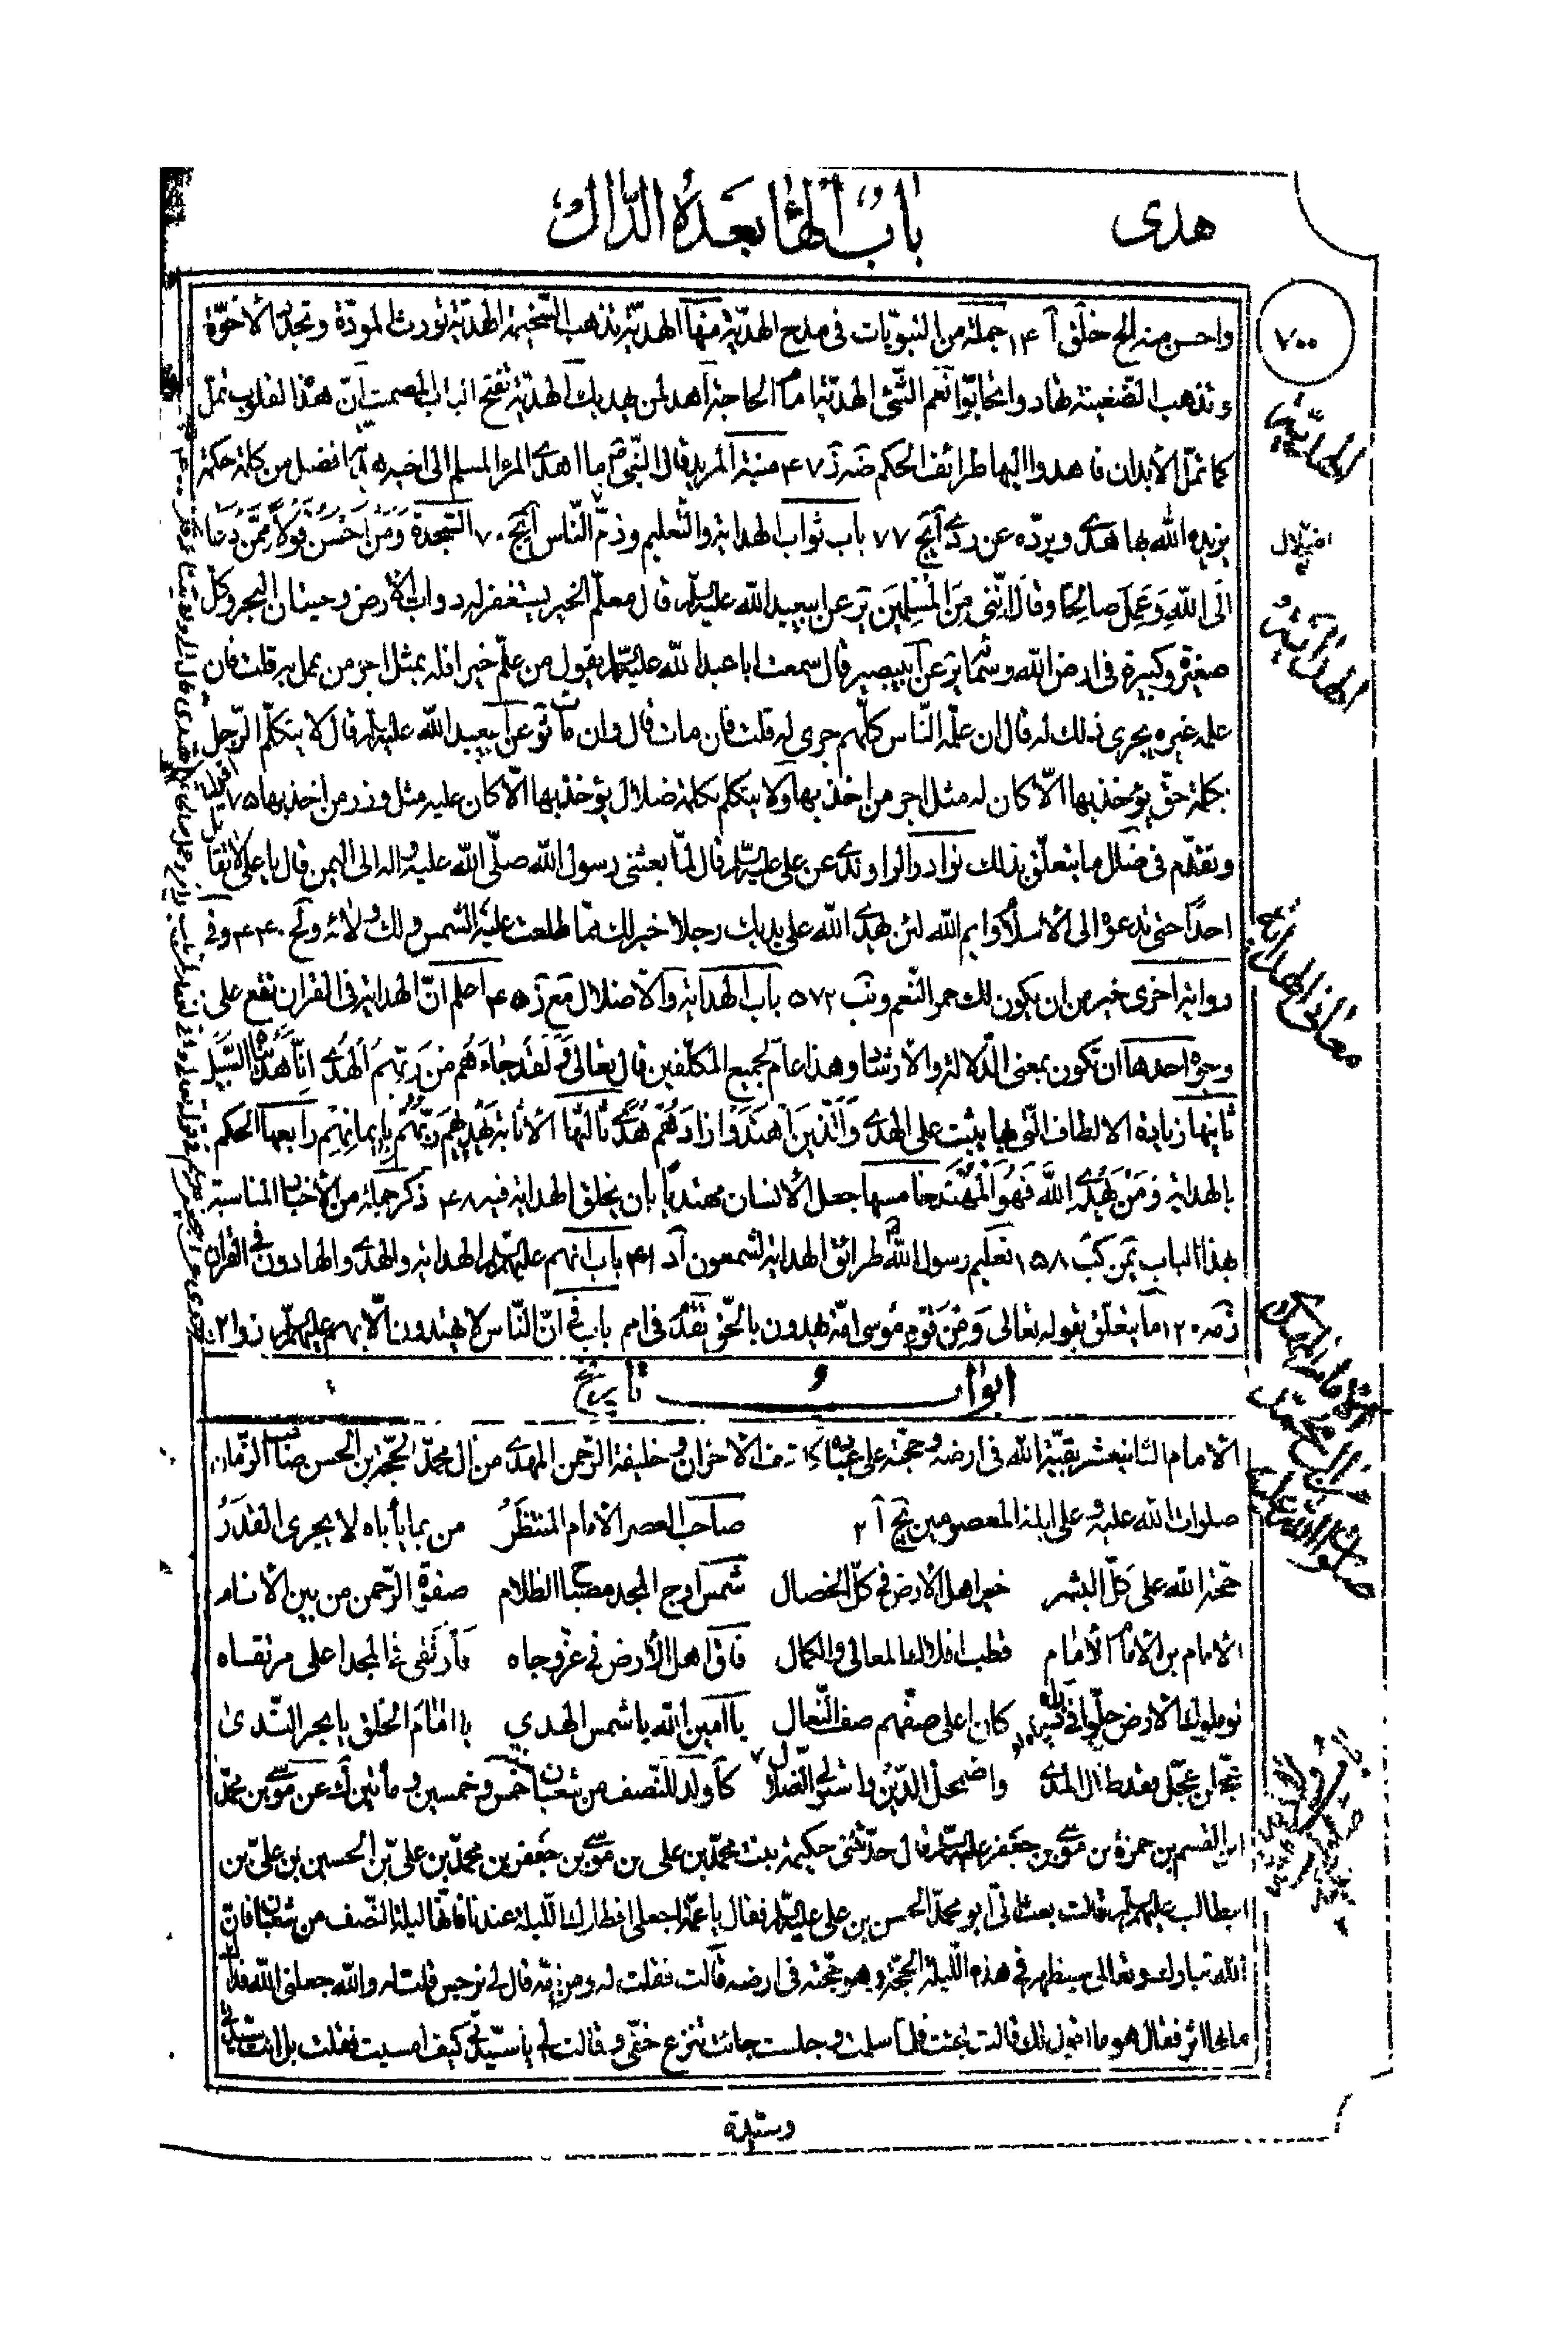 هدى
باب الهاء بعده الدال
٧٠٠
واحسن منه الخ خلق آ ١٤ جملة من النبويّات فى مدح الهديّة منها الهديّة تذهب السخيمة الهديّة تورث المودّة وتجدّد الأخوّة
وتذهب الضّغينة تهادوا تحابّوا نعم الشّئ الهديّة امام الحاجة اهد لمن يهديك الهديّة تفتح الباب المصمت انّ هذه القلوب تملّ
كما تملّ الأبدان فاهدوا اليها طرائف الحكم ضه ز ٤٧ منية المريد قال النّبى ص ما اهدى المرء المسلم الى اخيه هديّة افضل من كلمة حكمة
يزيده الله بها هدى ويردّه عن ردى آيج ٧٧ باب ثواب الهداية والتّعليم وذمّ النّاس آيج ٧٠ السّجدة وَمَنْ اَحْسَنُ قَوْلاً مِمَّنْ دَعَا
اِلَى اللهِ وَعَمِلَ صالِحًا وقالَ اِنَّنِى مِنَ المُسْلِمِينَ ير عن ابيعبد الله عليه السلام قال معلّم الخير يستغفر له دواب الأرض وحيتان البحر وكل
صغيرة وكبيرة فى ارض الله وسمائه ير عن ابيبصير قال سمعت ابا عبد الله عليه السلام يقول من علّم خيرا فله بمثل اجر من عمل به قلت فان
علمه غيره يجرى ذلك له قال ان علّمه النّاس كلّهم جرى له قلت فان مات قال وان مات ثو عن ابيعبد الله عليه السلام قال لا يتكلّم الرّجل
بكلمة حقّ يؤخذ بها الّا كان له مثل اجر من اخذ بها ولا يتكلم بكلمة ضلال يؤخذ بها الّا كان عليه مثل وزر من اخذ بها ٧٥
وتقدّم فى ضلل ما يتعلّق بذلك نوادر الراوندى عن على عليه السلام قال لمّا بعثنى رسول الله صلّى الله عليه واله الى اليمن قال يا على لا تقاتل
احدًا حتى تدعوه الى الأسلام وايم الله لئن يهدى الله على يديك رجلا خير لك ممّا طلعت عليه الشمس ولك ولائه و تح ٤٤٠ وفى
رواية اخرى خير من ان يكون لك حمر النّعم ونب ٥٧٢ باب الهداية والأضلال مع ز ٤٥ اعلم انّ الهداية فى القران تقع على
وجوه احدها ان تكون بمعنى الدّلالة والأرشاد وهذا عامّ لجميع المكلّفين قال تعالى وَلَقَد جاءَهُم مِن رَبِّهِم الهُدى انّا هَدَيْناهُ السَّبِيلَ
ثانيها زيادة الالطاف الّتى بها يثبت على الهدى وَالَّذينَ اهتَدَوْا زادَهُم هُدًى ثالثها الأثابة يَهْدِيهِم رَبُّهُم بِإيمانِهِم رابعها الحكم
بالهداية وَمَنْ يَهْدِى اللهُ فَهُوَ المُهْتَدِ خامسها جعل الأنسان مهتديًا بان يخلق الهداية فيه ٤٨ ذكر جملة من الأخبار المناسبة
بهذا الباب يمن كب ١٥٨ تعليم رسول الله ص طرائق الهداية لشمعون آ د ٤١ باب انّهم عليهم السلام الهداية والهدى والهادون فى القران
ز مه ١٢٠ ما يتعلّق بقوله تعالى وَمِن قَومِ مُوسى امّة يهدون بالحّق تقدّم فى امم باب فى انّ النّاس لا يهتدون الّا بهم عليهم السلام
ابواب و تاريخ
الامام الثّانيعشر بقيّة الله فى ارضه وحجّته على عباده كاشف الاحزان وخليفة الرّحمن المهدى من آل محمّد الحجّة بن الحسن صاحب الزّمان
صلوات الله عليه وعلى ابائه المعصومين يج آ ٢ صاحب العصر الامام المنتظَرُ من بما يأباه لا يجرى القدَرُ
حجّة الله على كلّ البشر خير اهل الأرض فى كلّ الخصال شمس اوج المجد مصباح الظلام صفوة الرّحمن من بين الأنام
الامام بن الامام بن الأمام قطب افلاك المعالى والكمال فاق اهل الأرض فى عزّ وجاه وارتقى فى المجد اعلى مرتقاه
لو ملوك الأرض حلّوا فى ذراه كان اعلى صفّهم صفّ النّعال يا امين الله يا شمس الهدى يا امام الخلق يا بحر النّدى
عجّلن عجّل فقد طال المدى واضمحلّ الدّين واستولى الضلال كا ولد للنّصف من شعبان خمس وخمسين ومأتين ك عن موسى بن محمّد
بن القسم بن حمزة بن موسى بن جعفر عليه السلام قال حدّثتنى حكيمة بنت محمّد بن على بن موسى بن جعفر بن محمّد بن على بن الحسين بن على بن
ابيطالب عليهم السلام قالت بعث الىّ ابو محمّد الحسن بن على عليه السلام فقال يا عمّة اجعلى افطارك اللّيلة عندنا فانّها ليلة النّصف من شعبان فانّ
الله تبارك وتعالى سيظهر فى هذه اللّيلة الحجّة وهو حجّته فى ارضه قالت فقلت له ومن امّه قال لى نرجس قلت له والله جعلنى الله فداك
ما بها اثر فقال هو ما اقول لك قالت فجئت فلمّا سلمت وجلست جائت تنزع خفّى وقالت لى يا سيّدتى كيف امسيت فقلت بل انت سيّدتى
الهديّة
اضلال
الهداية
معانى الهداية
وسيّدة